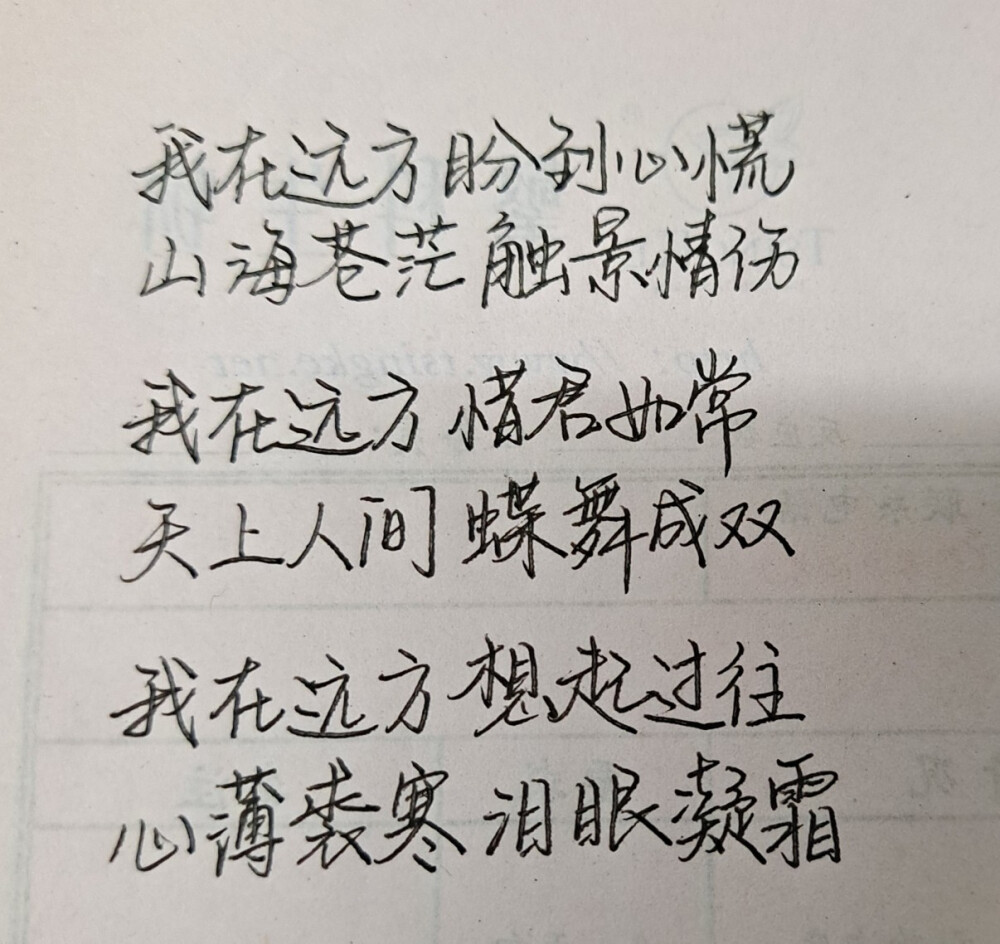 我在远方 盼到心慌
山海苍茫 触景情伤
我在远方 惜君如常
天上人间 蝶舞成双
我在远方 想起过往
心薄裘寒 泪眼凝霜